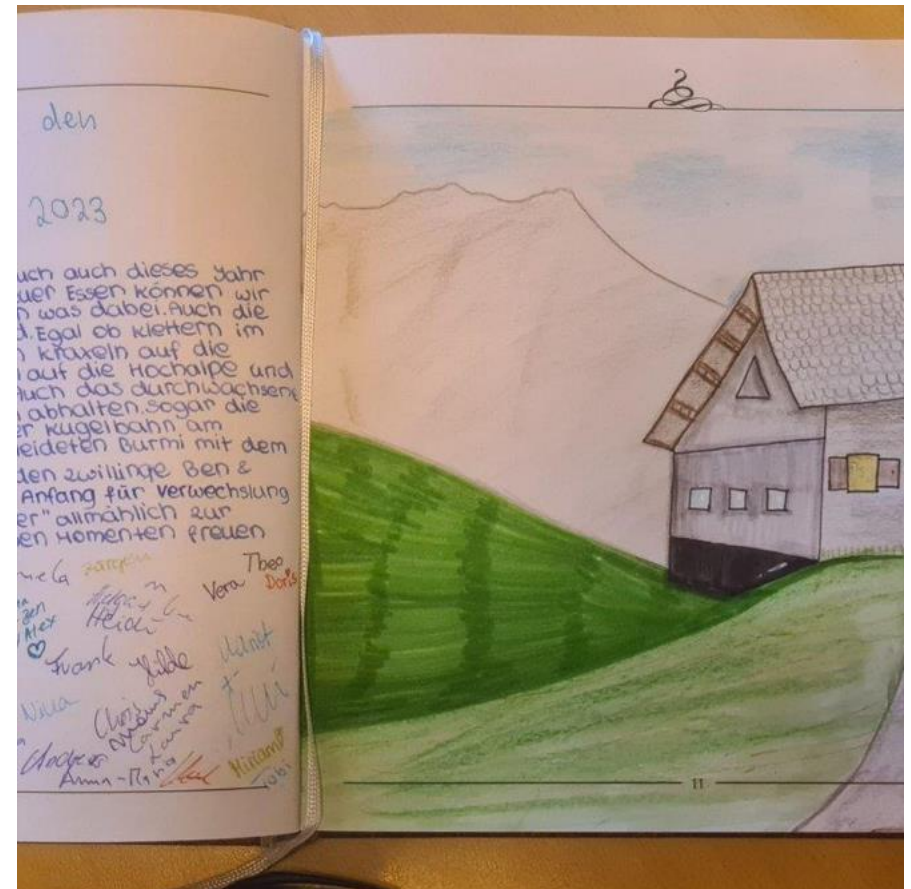 den
2023
uch auch dieses Jahr
uer Essen können wir
n was dabei. Auch die
d. Egal ob klettern im
n kraxeln auf die
auf die Hochalpe und
Auch das durchwachsene
abhalten. Sogar die
er Kugelbahn am
eideten Burmi mit dem
den zwillinge Ben &
Anfang für Verwechslung
er" allmählich zur
en Momenten freuen
Theo
Vera Doris
Alex
Heidi
Frank Hilde
Chris
Carmen
Laura
Andreas
Miriam
Tobi
11